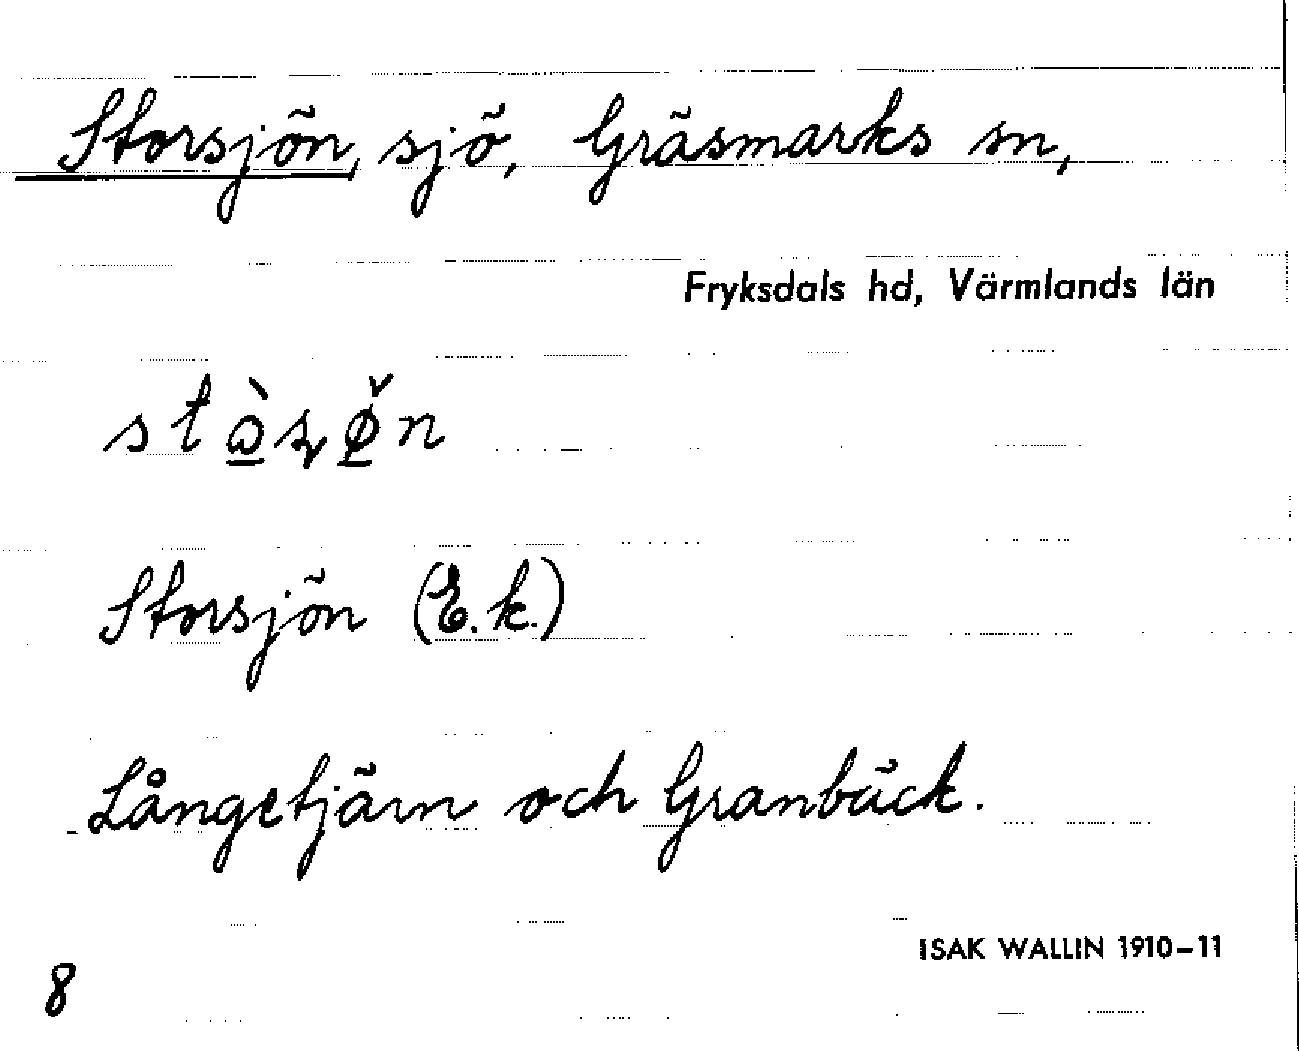 Storsjön, sjö, Gräsmarks sn,
Fryksdals hd, Värmlands län
Storsjön (E.k.)
Långetjärn och Granbäck.
ISAK WALLIN 1910–11
8